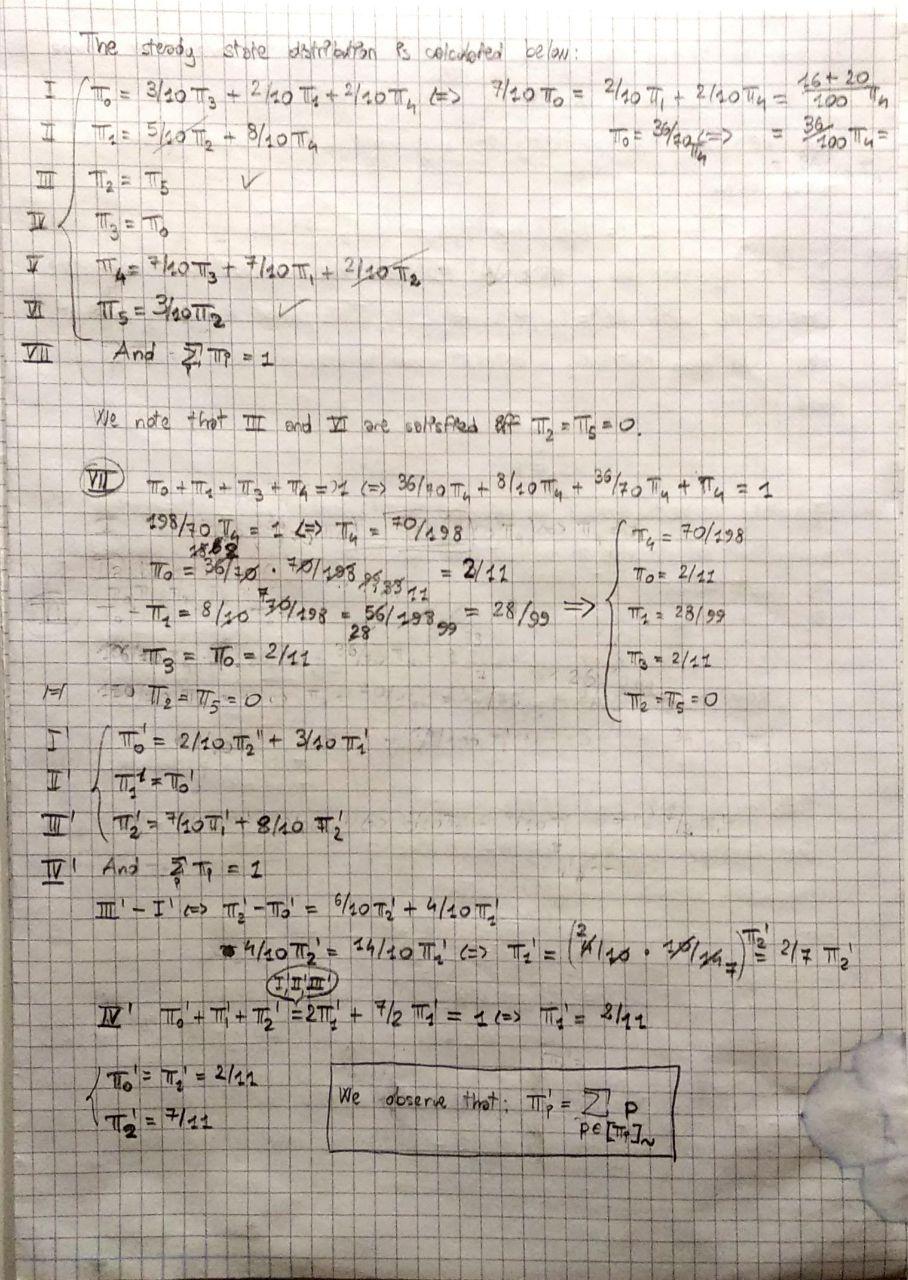 The steady state distribution is calculated below:
I π₀ = 3/10 π₃ + 2/10 π₁ + 2/10 π₄ <=> 7/10 π₀ = 2/10 π₁ + 2/10 π₄ = (16+20)/100 π₄
II π₁ = 5/10 π₂ + 8/10 π₄ π₀ = 36/70 π₄ <=> = 36/100 π₄ =
III π₂ = π₅ ✓
IV π₃ = π₀
V π₄ = 7/10 π₃ + 7/10 π₁ + 2/10 π₂
VI π₅ = 3/10 π₂ ✓
VII And Σ πp = 1
We note that III and VI are satisfied iff π₂ = π₅ = 0.
VII π₀ + π₁ + π₃ + π₄ = 1 <=> 36/70 π₄ + 8/10 π₄ + 36/70 π₄ + π₄ = 1
198/70 π₄ = 1 <=> π₄ = 70/198
π₀ = 36/70 · 70/198 = 2/11
π₁ = 8/10 70/198 = 56/198 = 28/99 =>
π₃ = π₀ = 2/11
π₂ = π₅ = 0
π₄ = 70/198
π₀ = 2/11
π₁ = 28/99
π₃ = 2/11
π₂ = π₅ = 0
I' π₀' = 2/10 π₂' + 3/10 π₁'
II' π₁' = π₀'
III' π₂' = 7/10 π₁' + 8/10 π₂'
IV' And Σ πp = 1
III' - I' <=> π₂' - π₀' = 6/10 π₂' + 4/10 π₁'
4/10 π₂' = 14/10 π₁' <=> π₁' = (4/10 · 10/14) π₂' = 2/7 π₂'
I', II', III'
IV' π₀' + π₁' + π₂' = 2π₁' + 7/2 π₁' = 1 <=> π₁' = 2/11
π₀' = π₁' = 2/11
π₂' = 7/11
We observe that: πp' = Σ p
p∈[πp]~